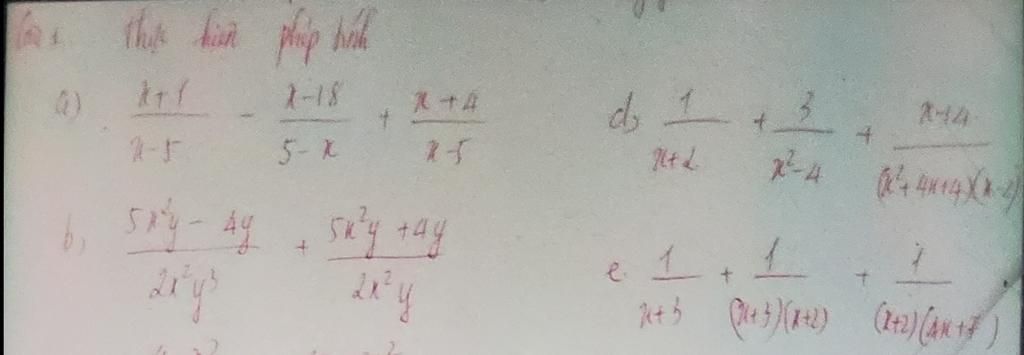 Bài 1. Thực hiện phép tính
a) \frac{x+1}{x-5} - \frac{x-18}{5-x} + \frac{x+4}{x-5}
b, \frac{5x^2y - 4y}{2x^2y^3} + \frac{5x^2y + 4y}{2x^2y}
d, \frac{1}{x+2} + \frac{3}{x^2-4} + \frac{x+14}{(x^2+4x+4)(x-2)}
e. \frac{1}{x+3} + \frac{1}{(x+3)(x+2)} + \frac{1}{(x+2)(4x+7)}